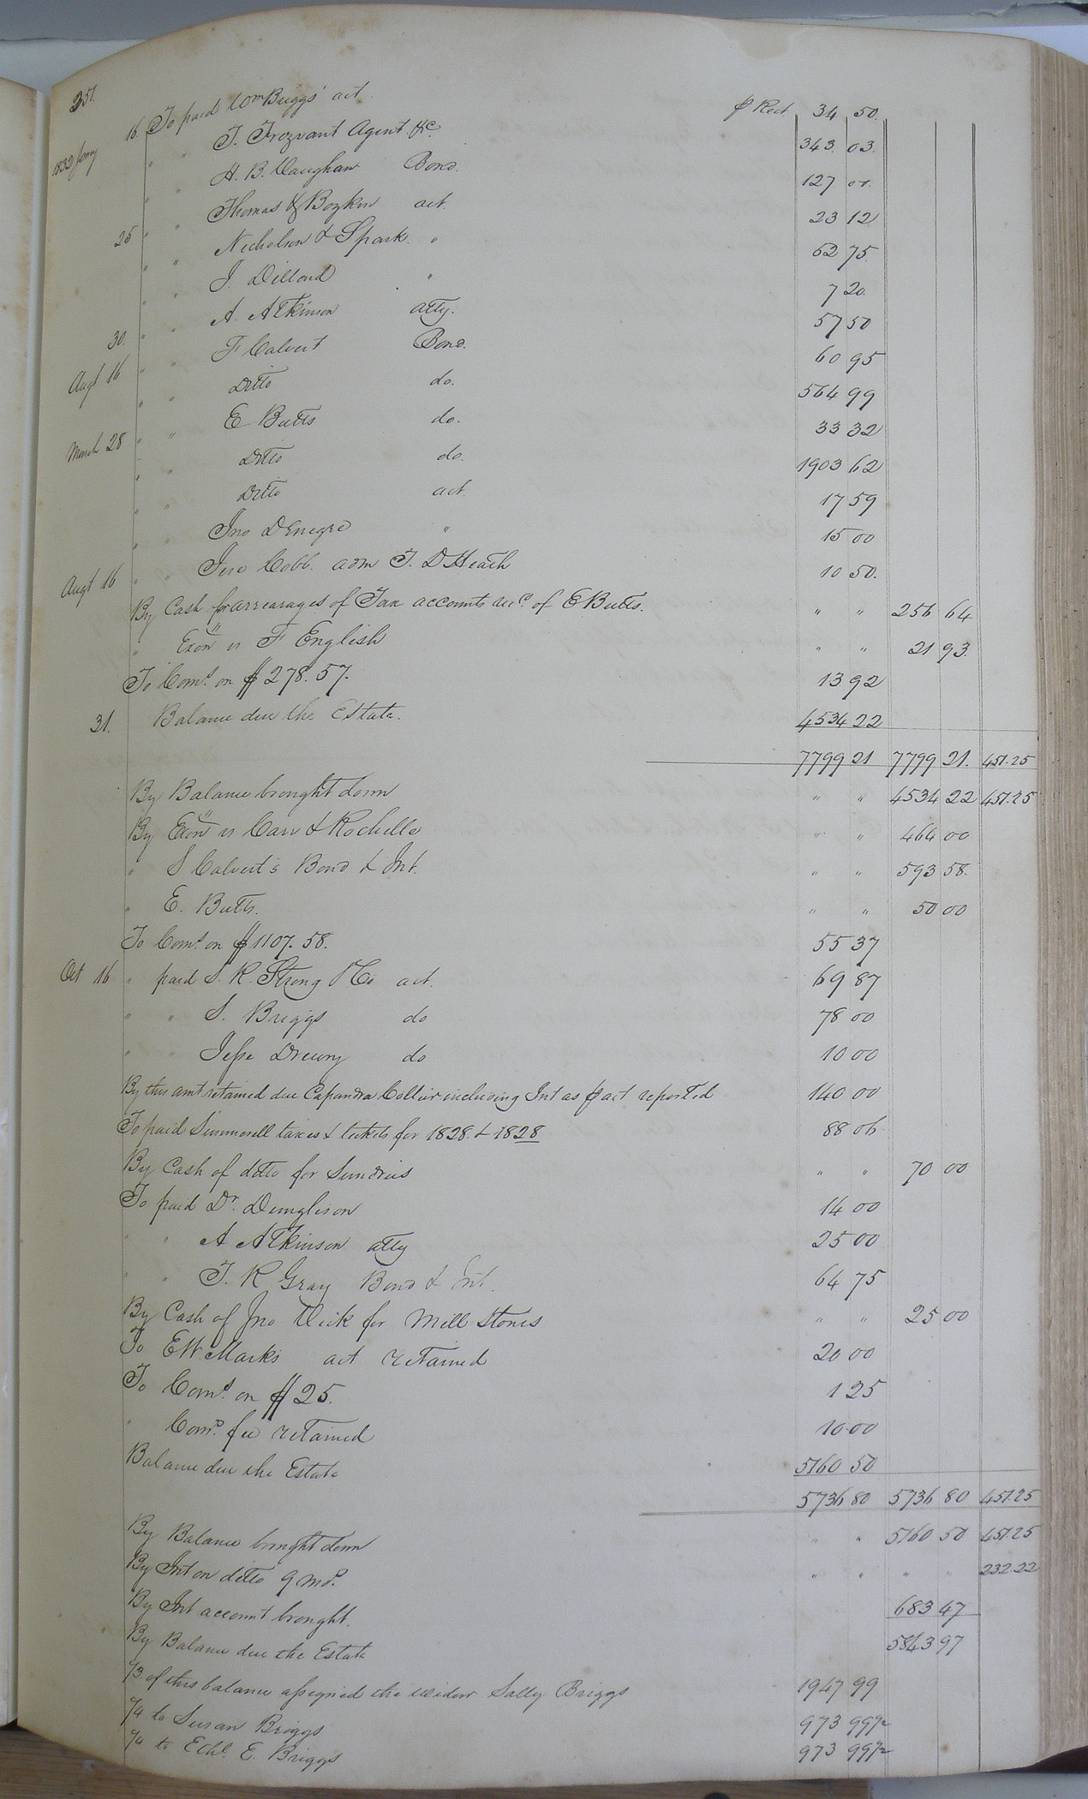 251.
1830 Jany 16 To paid Wm Briggs' act. ⅌ Rect 34 50.
" " T. Trezvant Agent &c. 343. 03.
" " H. B. Vaughan Bond. 127 01.
" " Thomas & Boykin act. 23 12
25 " " Nicholson & Spark. " 62 75.
" " J. Dillard " 7 20.
" " A. Atkinson atty. 57 50
30. " " F Calvert Bond. 60 95
Augt 16 " " Ditto do. 564 99
" " E Butts do. 33 32
March 28 " " Ditto do. 1903 62
" " Ditto act. 17 59
" " Jno D " 15 00
Augt 16 " " Cobb. adm T. D Heath 10 50.
By Cash for arrearages of Tax accounts recd. of E Butts. " " 256 64
" Exon vs F English " " 21 93.
To Coms. on $278.57. 13 92
31. Balance due the Estate. 4534 22
7799 21 7799 21. 451.25
By Balance brought down " " 4534 22 451.25
By Exon vs Carr & Rochelle " " 464 00
" S Calvert's Bond & Int. " " 593 58.
" E. Butts. " " 50 00
To Coms. on $1107.58. 55 37
Oct 16 " paid S. R. Strong & Co act. 69 87
" " S. Briggs do 78 00
" " Jesse Drewry do 10 00
By this amt retained due Capandra Collier including Int as ⅌ act reported 140 00
To paid Summerell taxes & tickets for 1828. & 1828 88 06.
By Cash of ditto for Sundries " " 70 00
To paid Dr. 14 00
" " A Atkinson atty 25 00
" " T. R Gray Bond & Int. 64 75
By Cash of Jno Vick for Mill Stones " " 25 00
To E W Marks act retained 20 00
To Coms. on $25. 1 25
" Comr. fee retained 10.00
Balance due the Estate 5160 50
5736 80 5736 80 451.25
By Balance brought down " " 5160 50 451.25
By Int on ditto 9 mos. " " " " 232.22
By Int account brought. 683 47
By Balance due the Estate 5843 97
1/3 of this balance assigned the widow Sally Briggs 1947 99
1/4 to Susan Briggs 973 99½
1/4 to E. Briggs 973 99½